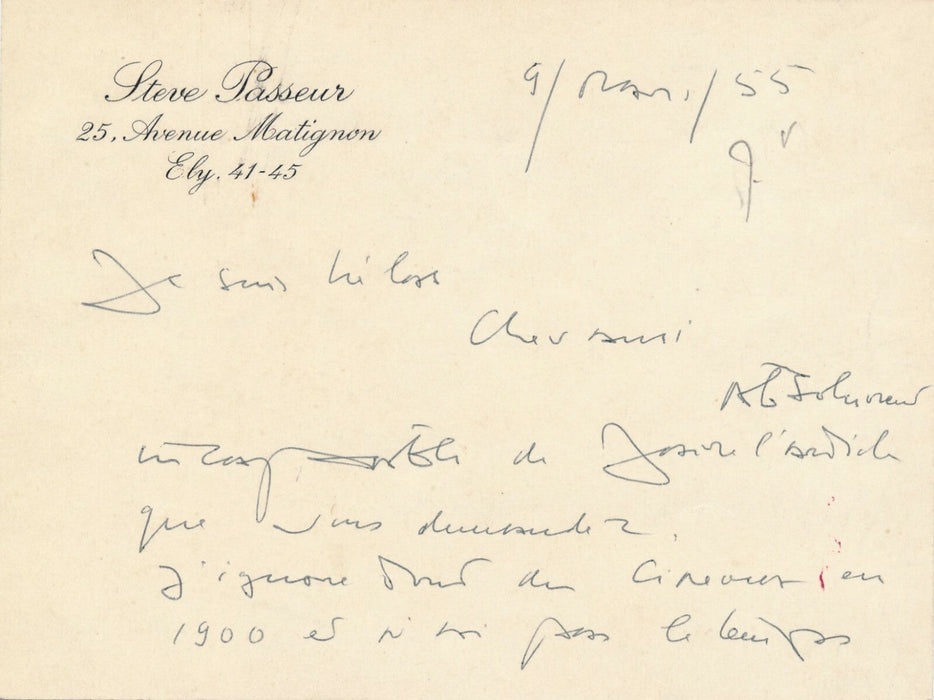 Steve Passeur
25, Avenue Matignon
Ely. 41-45
9/mars/55
Je suis hélas
Cher ami
Absolument
incapable de faire l'article
que vous demandez.
J'ignore tout du cinéma en
1900 et n'ai pas le temps